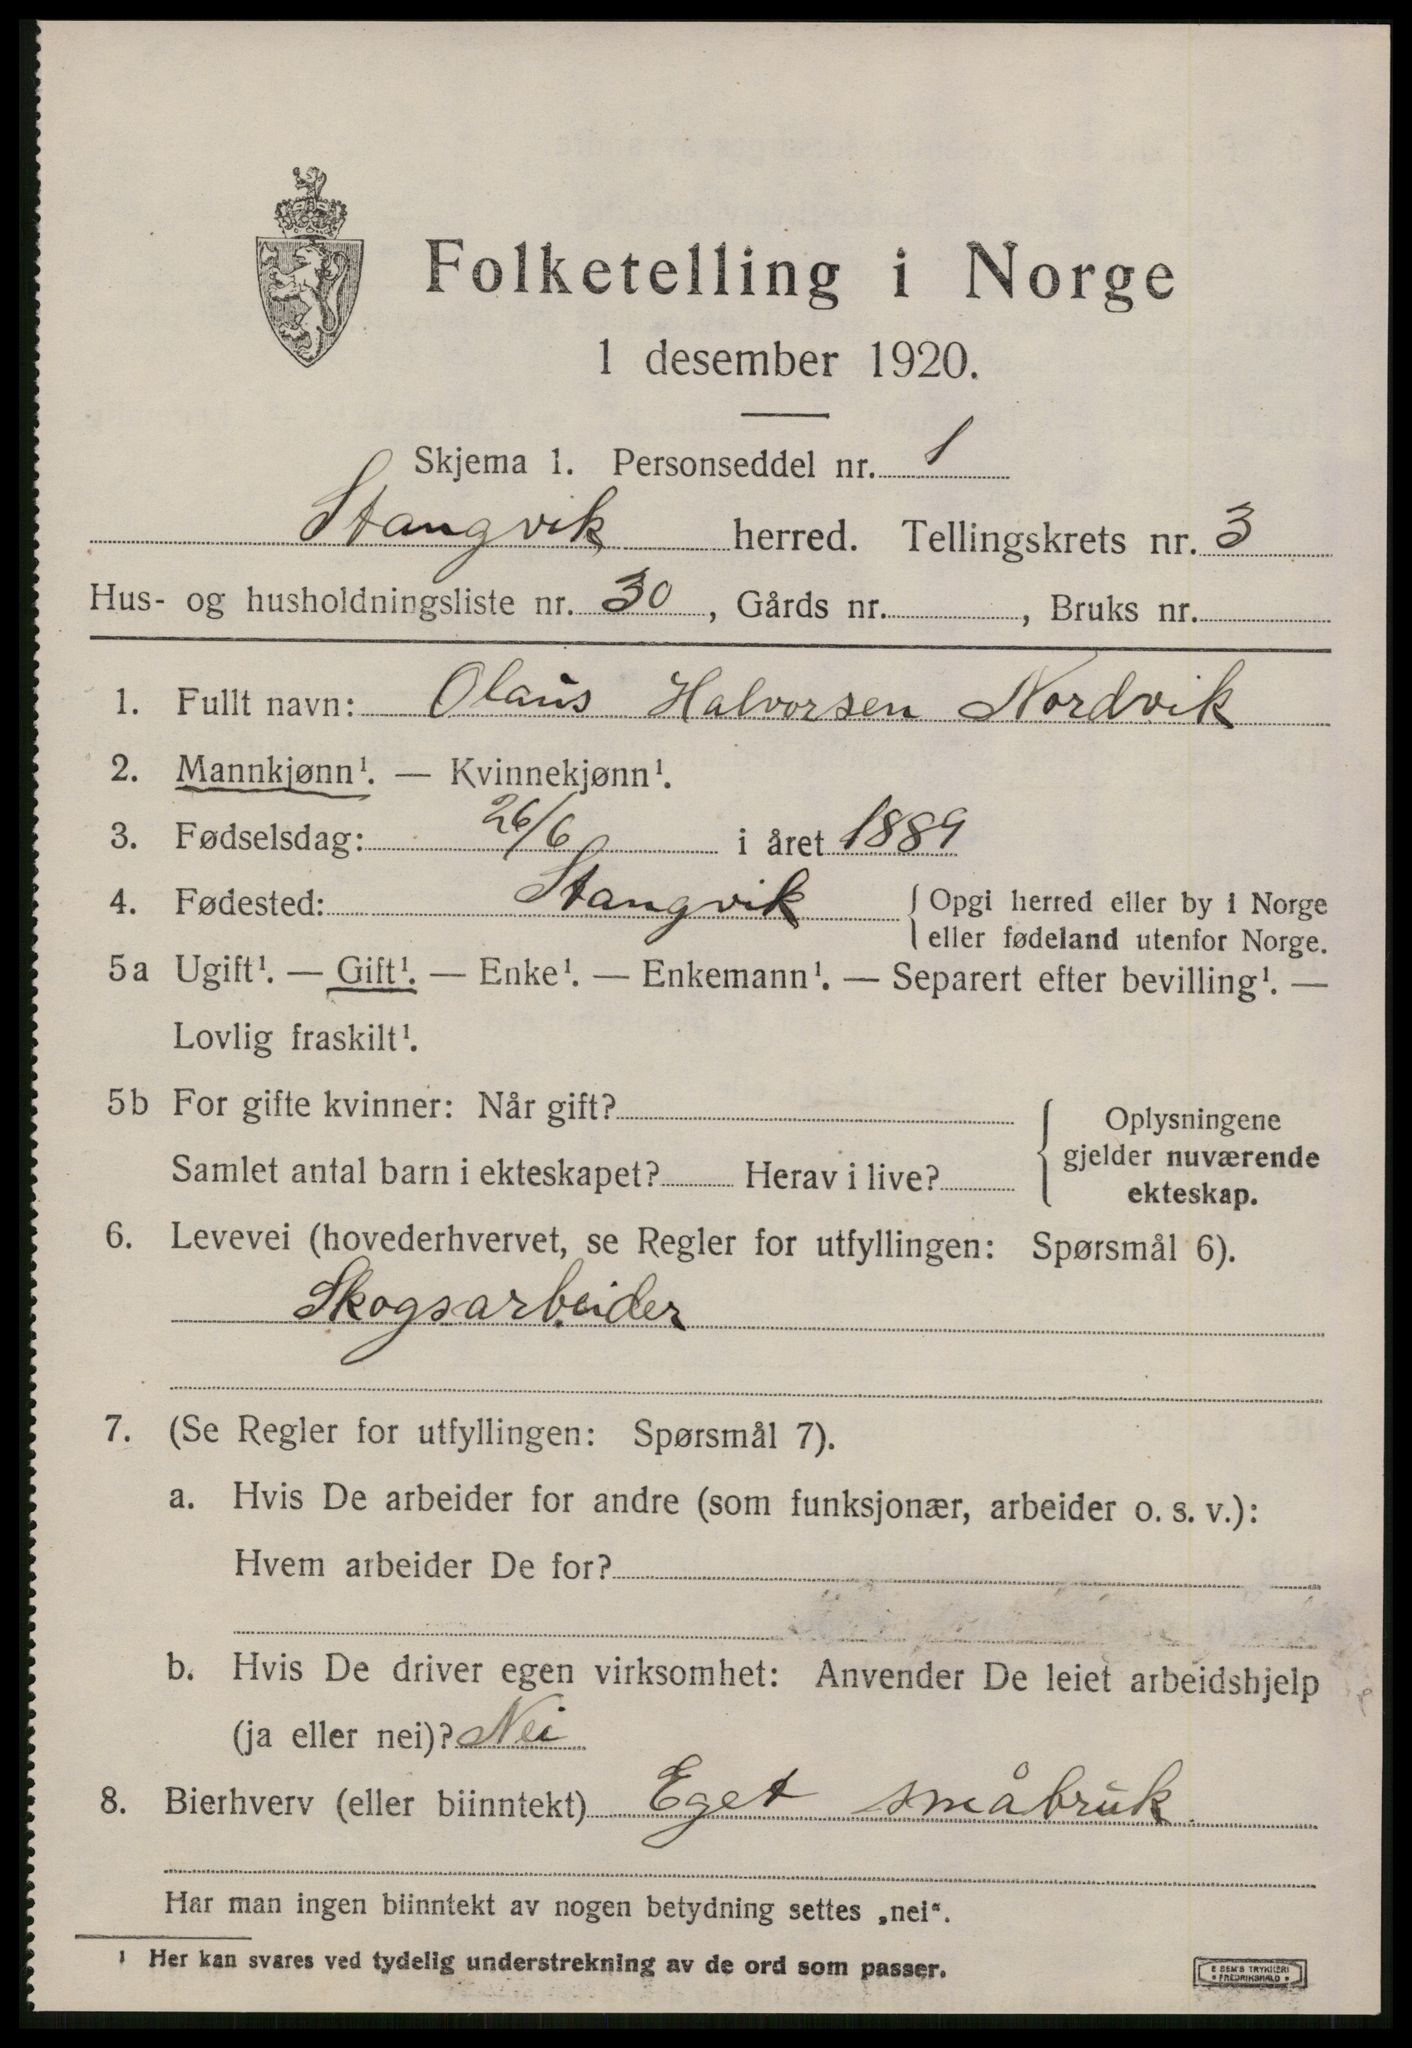 Folketelling i Norge
1 desember 1920.
Skjema 1. Personseddel nr. 1
Stangvik herred. Tellingskrets nr. 3
Hus- og husholdningsliste nr. 30, Gårds nr. , Bruks nr.
1. Fullt navn: Olaus Halvorsen Nordvik
2. Mannkjønn¹. — Kvinnekjønn¹.
3. Fødselsdag: 26/6 i året 1889
4. Fødested: Stangvik { Opgi herred eller by i Norge
eller fødeland utenfor Norge.
5a Ugift¹. — Gift¹. — Enke¹. — Enkemann¹. — Separert efter bevilling¹. —
Lovlig fraskilt¹.
5b For gifte kvinner: Når gift?
Samlet antal barn i ekteskapet? Herav i live?
Oplysningene
gjelder nuværende
ekteskap.
6. Levevei (hovederhvervet, se Regler for utfyllingen: Spørsmål 6).
Skogsarbeider
7. (Se Regler for utfyllingen: Spørsmål 7).
a. Hvis De arbeider for andre (som funksjonær, arbeider o. s. v.):
Hvem arbeider De for?
b. Hvis De driver egen virksomhet: Anvender De leiet arbeidshjelp
(ja eller nei)? Nei
8. Bierhverv (eller biinntekt) Eget småbruk
Har man ingen biinntekt av nogen betydning settes „nei“.
¹ Her kan svares ved tydelig understrekning av de ord som passer.
E SEM'S TRYKKERI
• FREDRIKSHALD •